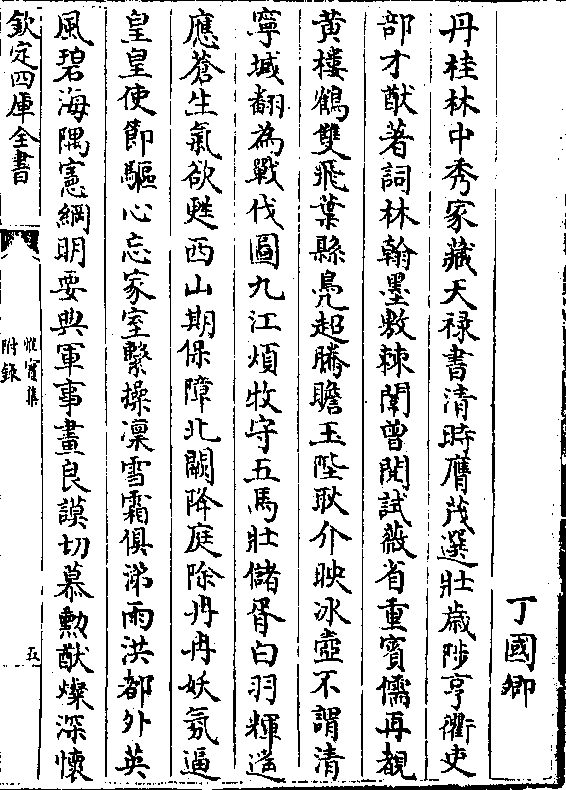 丁國卿
丹桂林中秀家藏天禄書清時膺茂選壯歳陟亨衢吏
部才猷著詞林翰墨敷棘闈曾閲試薇省重賓儒再覩
黄樓鶴雙飛葉縣鳬超騰瞻玉陛耿介映冰壺不謂清
寧域翻為戰伐圖九江煩牧守五馬壯儲胥白羽輝遥
應蒼生氣欲甦西山期保障北闕降庭除冉冉妖氛逼
皇皇使節驅心忘家室繫操凛雪霜俱涕雨洪都外英
風碧海隅憲綱明要典軍事畫良謨切慕勲猷燦深懷
欽定四庫全書
惟實集
附錄
五